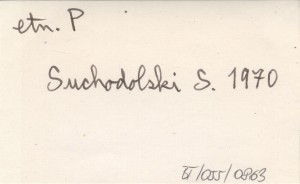 etn. P
Suchodolski S. 1970
II/055/0863